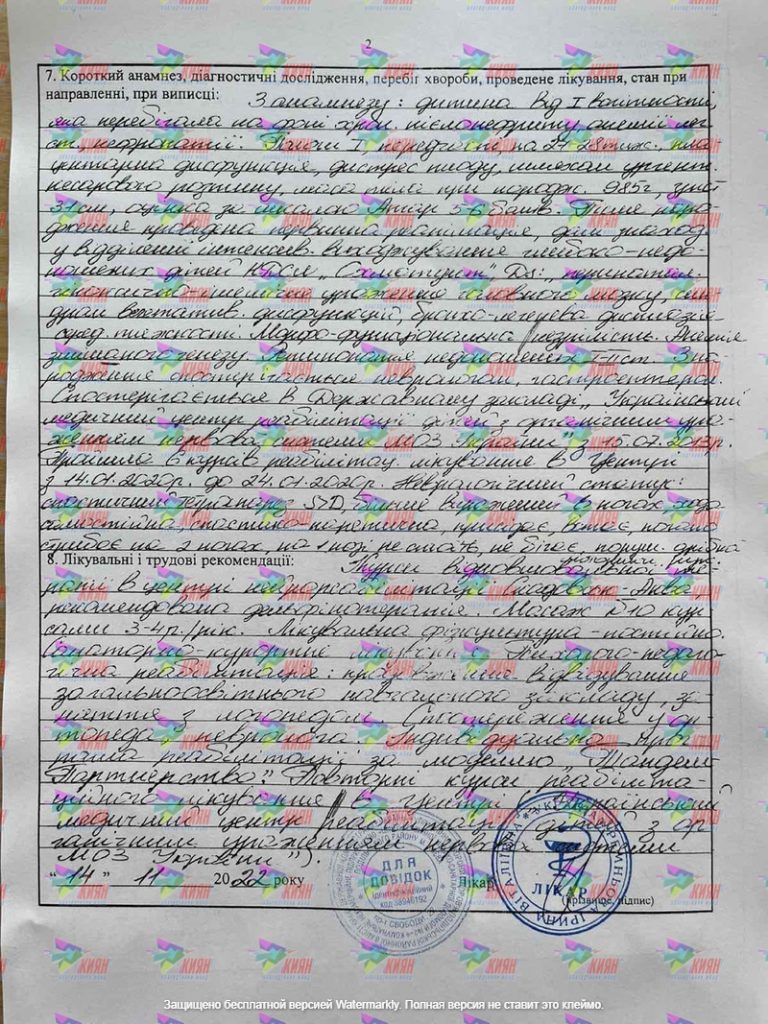 2
7. Короткий анамнез, діагностичні дослідження, перебіг хвороби, проведене лікування, стан при
направленні, при виписці: З анамнезу: дитина від I вагітності,
яка перебігала на фоні хрон. пієлонефриту, анемії
ст., нефропатії. Пологи I, передчасні, на 27-28 тиж.
дисфункція, дистрес плоду, шляхом ургент.
кесаревого розтину, маса тіла при народж. 985г, зріст
31см, оцінка за шкалою Апгар балів. Після
дження проведена первинна реанімація, далі
у відділенні інтенсив. виходжування глибоко-недо-
ношених дітей "Охматдит" Ds: "перинатал.
гіпоксично-ішемічне ураження головного мозку, син-
дром вегетатив. дисфункцій, бронхо-легенева дисплазія
серед. тяжкості. Морфо-функціональна незрілість. Анемія
змішаного генезу. Ретинопатія недоношених I-II ст. З на-
родження спостерігається неврологом,
Спостерігається в Державному закладі "Український
медичний центр реабілітації дітей з органічним ура-
женням нервової системи МОЗ України" з 15.07.2013р.
Пройшла курсів реабілітац. лікування в Центрі
з 14.01.2020р. до 24.01.2020р. Неврологічний статус:
спастичний тетрапарез S>D, більше виражений в ногах, хода
самостійна, спастико-паретична, присідає, встає, погано
стрибає на 2 ногах, на 1 нозі не скаче, не бігає, поруш. дрібна
8. Лікувальні і трудові рекомендації: Курси відновлювальної
рапії в центрі нейрореабілітації
рекомендована дельфінотерапія. Масаж №10 кур-
сами 3-4р./рік. Лікувальна фізкультура - постійно.
Санаторно-курортне лікування. Психолого-педаго-
гічна реабілітація: продовження відвідування
загальноосвітнього навчального закладу, за-
няття з логопедом. Спостереження у ор-
топеда, невролога. Індивідуальна прог-
рама реабілітації за моделлю "Тандем
Партнерство". Повторні курси реабіліта-
ційного лікування в Центрі ("Український
медичний центр реабілітації дітей з ор-
ганічним ураженням нервової системи
МОЗ України").
"14" 11 2022 року Лікар
(прізвище, підпис)
ДЛЯ
ДОВІДОК
ІДЕНТИФІКАЦІЙНИЙ
КОД 38946192
ЛІКАР
КИЯН
Защищено бесплатной версией Watermarkly. Полная версия не ставит это клеймо.